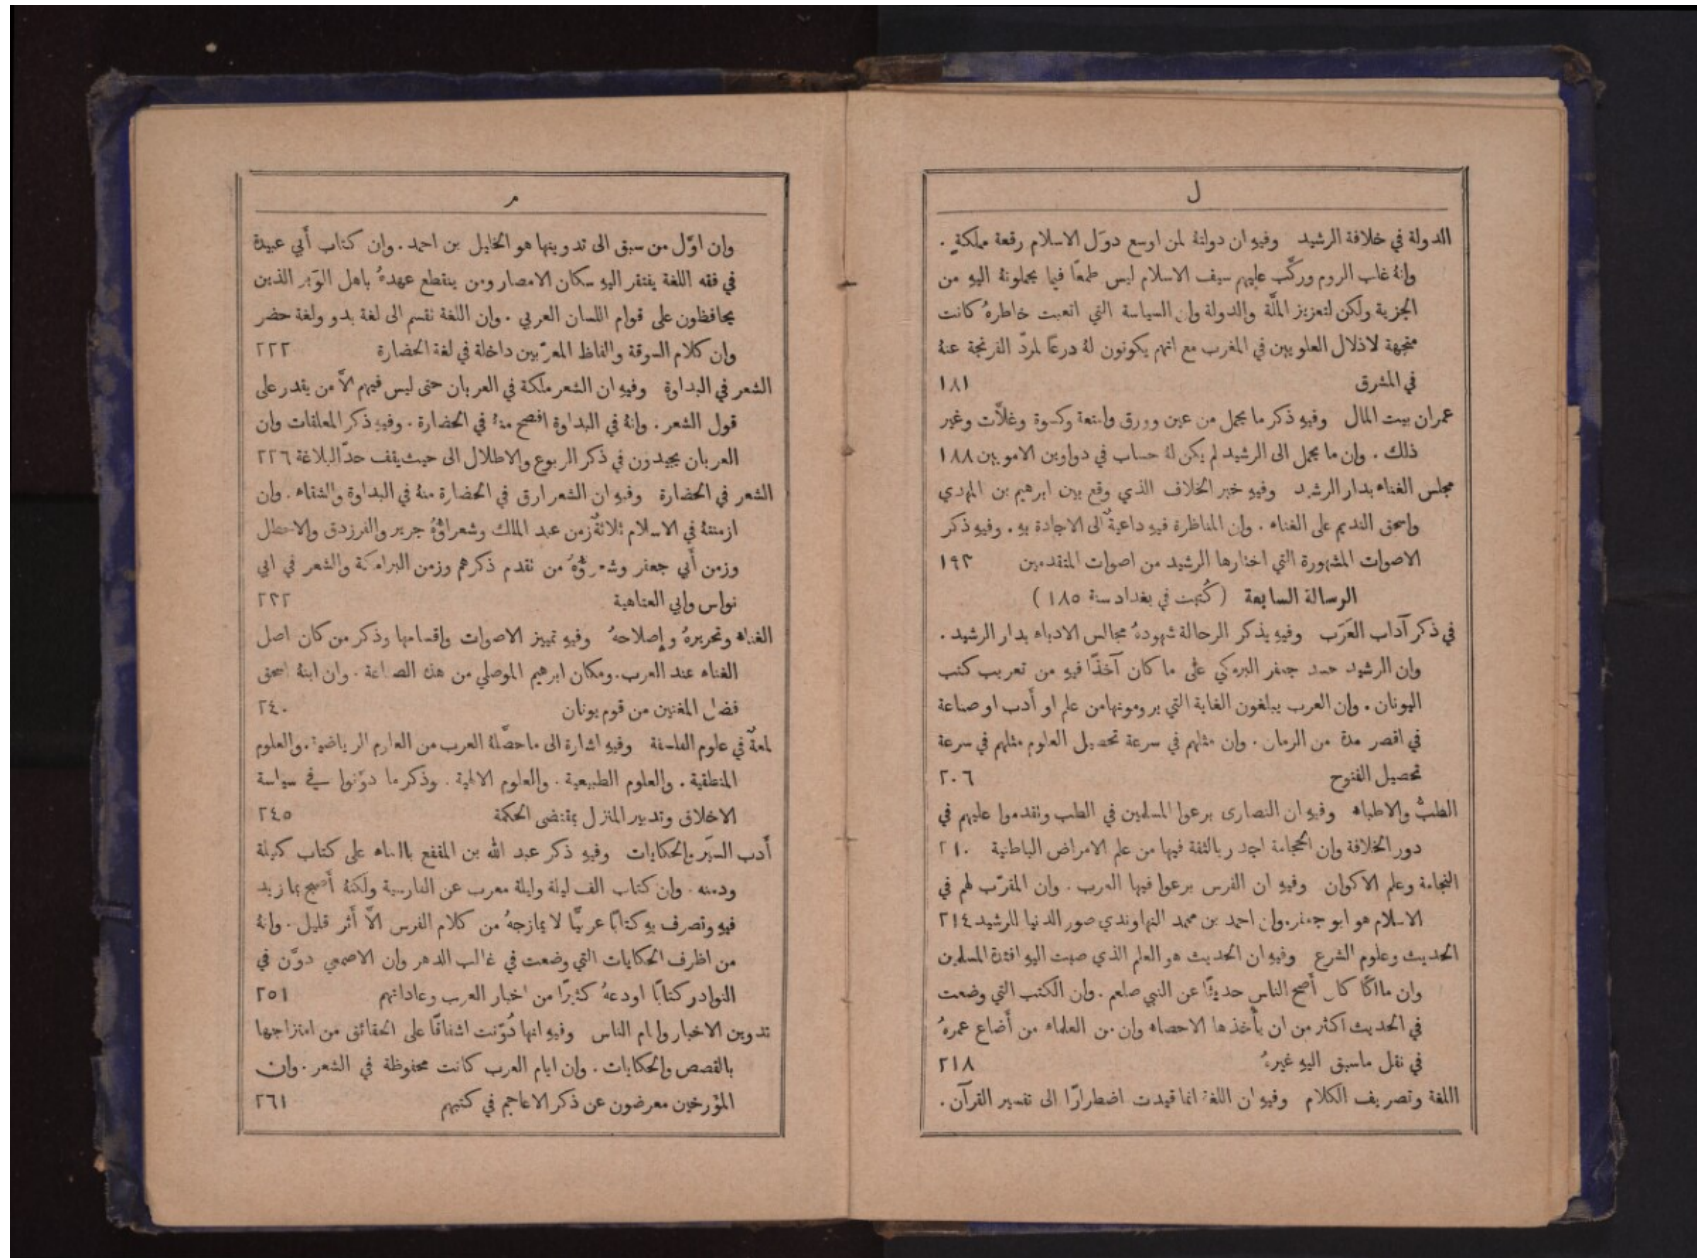 ل
الدولة في خلافة الرشيد وفيهِ ان دولتهُ لمن اوسع دوَل الاسلام رقعة مملكةٍ .
وانهُ غلب الروم وركَّب عليهم سيف الاسلام ليس طمعًا فيما يحملونهُ اليهِ من
الجزية ولكن لتعزيز الملَّة والدولة وان السياسة التي اتعبت خاطرهُ كانت
متجهة لاذلال العلويين في المغرب مع انهم يكونون لهُ درعًا لمردّ الفرنجة عنهُ
في المشرق ١٨١
عمران بيت المال وفيهِ ذكر ما يحمل من عين وورق وامتعة وكسوة وغلاَّت وغير
ذلك . وان ما يحمل الى الرشيد لم يكن لهُ حساب في دواوين الامويين ١٨٨
مجلس الغناء بدار الرشيد وفيهِ خبر الخلاف الذي وقع بين ابرهيم بن المهدي
واسحق النديم على الغناء . وان المناظرة فيهِ داعيةٌ الى الاجادة بهِ . وفيهِ ذكر
الاصوات المشهورة التي اختارها الرشيد من اصوات المتقدمين ١٩٣
الرسالة السابعة (كُتبت في بغداد سنة ١٨٥)
في ذكر آداب العَرَب وفيهِ يذكر الرحالة شهودهُ مجالس الادباء بدار الرشيد .
وان الرشيد حسد جعفر البرمكي على ما كان آخذًا فيهِ من تعريب كتب
اليونان . وان العرب يبلغون الغاية التي يرومونها من علم او أَدب او صناعة
في اقصر مدة من الزمان . وان مثلهم في سرعة تحصيل العلوم مثلهم في سرعة
تحصيل الفتوح ٢٠٦
الطبُّ والاطباء وفيهِ ان النصارى برعوا المسلمين في الطب وتقدموا عليهم في
دور الخلافة وان الحجامة اجدر بالثقة فيها من علم الامراض الباطنية ٢١٠
النجامة وعلم الاكوان وفيهِ ان الفرس برعوا فيها العرب . وان المقرّب لهم في
الاسلام هو ابو جعفر. وان احمد بن محمد النهاوندي صور الدنيا للرشيد ٢١٤
الحديث وعلوم الشرع وفيهِ ان الحديث هو العلم الذي صبت اليهِ افئدة المسلمين
وان مالكًا كان أَصح الناس حديثًا عن النبي صلعم . وان الكتب التي وضعت
في الحديث اكثر من ان يأْخذها الاحصاء وان من العلماء من أَضاع عمرهُ
في نقل ماسبق اليهِ غيرهُ ٢١٨
اللغة وتصريف الكلام وفيهِ ان اللغة انما قيدت اضطرارًا الى تفسير القرآن .
م
وان اوّل من سبق الى تدوينها هو الخليل بن احمد . وان كتاب أَبي عبيدة
في فقه اللغة يفتقر اليهِ سكان الامصار ومن ينقطع عهدهُ باهل الوَبر الذين
يحافظون على قوام اللسان العربي . وان اللغة تقسم الى لغة بدو ولغة حضر
وان كلام السوقة والفاظ المعرّبين داخلة في لغة الحضارة ٢٢٢
الشعر في البداوة وفيهِ ان الشعر ملكة في العربان حتى ليس فيهم الاَّ من يقدر على
قول الشعر . وانهُ في البداوة افصح منهُ في الحضارة . وفيهِ ذكر المعلقات وان
العربان يجيدون في ذكر الربوع والاطلال الى حيث يقف حدّ البلاغة ٢٢٦
الشعر في الحضارة وفيهِ ان الشعر ارق في الحضارة منهُ في البداوة والشقاء . وان
ازمنتهُ في الاسلام ثلاثةٌ زمن عبد الملك وشعراؤهُ جرير والفرزدق والاخطل
وزمن أَبي جعفر وشعراؤهُ من تقدم ذكرهم وزمن البرامكة والشعر في ابي
نواس وابي العتاهية ٢٣٢
الغناء وتحريرهُ وإِصلاحهُ وفيهِ تمييز الاصوات واقسامها وذكر من كان اصل
الغناء عند العرب. ومكان ابرهيم الموصلي من هذه الصناعة . وان ابنهُ اسحق
فضل المغنين من قوم يونان ٢٤٠
لمعةٌ في علوم الفلسفة وفيهِ اشارة الى ما حصَّلهُ العرب من العلوم الرياضية. والعلوم
المنطقية . والعلوم الطبيعية . والعلوم الالهية . وذكر ما دوّنوا في سياسة
الاخلاق وتدبير المنزل بمقتضى الحكمة ٢٤٥
أَدب السِيَر والحكايات وفيهِ ذكر عبد الله بن المقفع بالثناء على كتاب كليلة
ودمنه . وان كتاب الف ليلة وليلة معرب عن الفارسية ولكنهُ أَصبح بما زيد
فيهِ وتصرف بهِ كتابًا عربيًّا لا يمازجهُ من كلام الفرس الاَّ أَثر قليل . وانهُ
من اظرف الحكايات التي وضعت في غالب الدهر وان الاصمعي دوَّن في
النوادر كتابًا اودعهُ كثيرًا من اخبار العرب وعاداتهم ٢٥١
تدوين الاخبار وايام الناس وفيهِ انها دُوّنت اشفاقًا على الحقائق من امتزاجها
بالقصص والحكايات . وان ايام العرب كانت محفوظة في الشعر . وان
المؤرخين معرضون عن ذكر الاعاجم في كتبهم ٢٦١